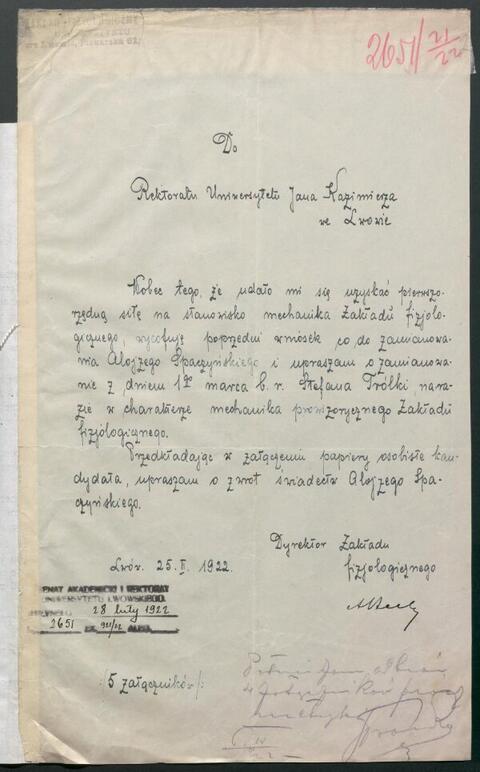 2651/21/22
Do
Rektoratu Uniwersytetu Jana Kazimierza
we Lwowie
Wobec tego, że udało mi się uzyskać pierwszo-
rzędną siłę na stanowisko mechanika Zakładu fizjolo-
gicznego, wycofuję poprzedni wniosek co do zamianowa-
nia Alojzego Spaczyńskiego i upraszam o zamianowa-
nie z dniem 1go marca b. r. Stefana Trólki, nara-
zie w charakterze mechanika prowizorycznego Zakładu
fizjologicznego.
Przedkładając w załączeniu papiery osobiste kan-
dydata, upraszam o zwrot świadectw Alojzego Spa-
czyńskiego.
Dyrektor Zakładu
fizjologicznego
Lwów. 25. II. 1922.
SENAT AKADEMICKI I REKTORAT
UNIWERSYTETU LWOWSKIEGO.
28 luty 1922
2651 921/22
/5 załączników/